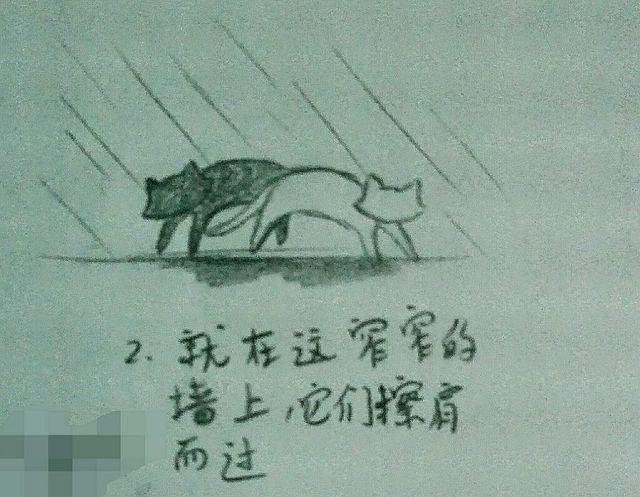 2. 就在这窄窄的
墙上,它们擦肩
而过